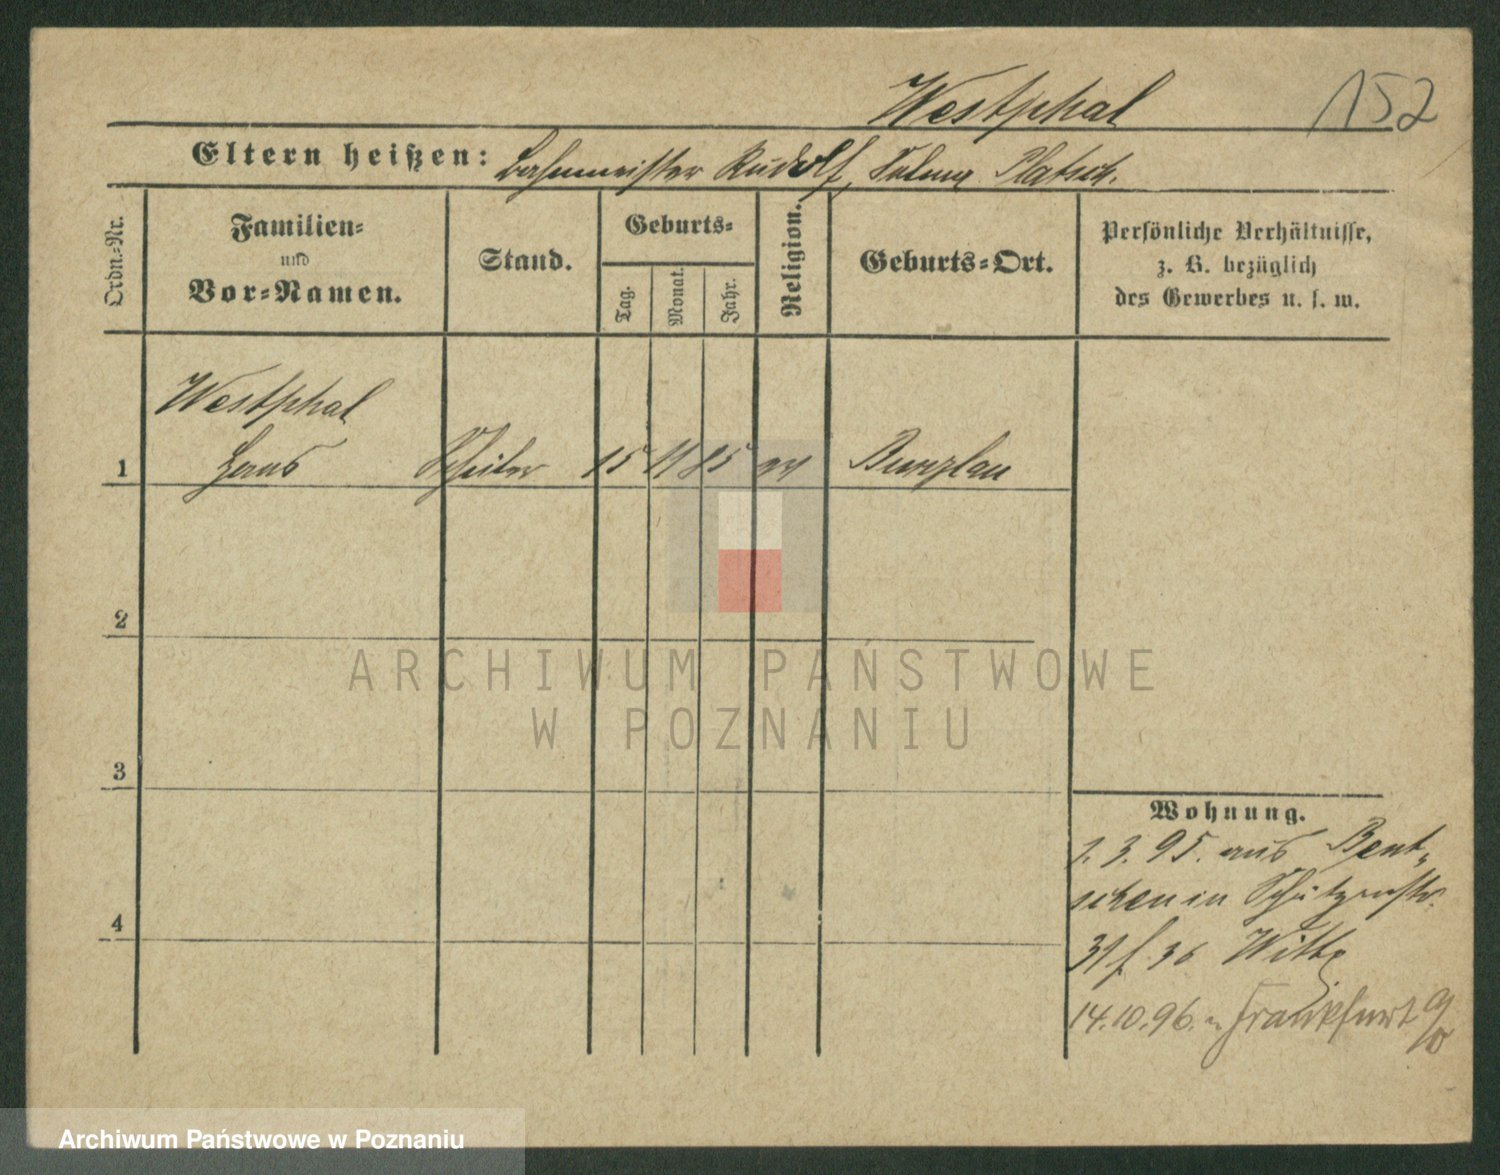 Westphal 152
Eltern heißen: Bahnmeister Rudolf, Platsch.
Ordn.-Nr.
Familien-
und
Vor-Namen.
Stand.
Geburts-
Tag.
Monat.
Jahr.
Religion.
Geburts-Ort.
Persönliche Verhältnisse,
z. B. bezüglich
des Gewerbes u. s. w.
Westphal
1 Hans Schüler 15 11 85 ev Bunzlau
2
3
4
Wohnung.
1. 3. 95. aus Bent-
schen in Schützenstr.
31 f 36 Witte
14.10.96. n Frankfurt a/O
ARCHIWUM PAŃSTWOWE
W POZNANIU
Archiwum Państwowe w Poznaniu